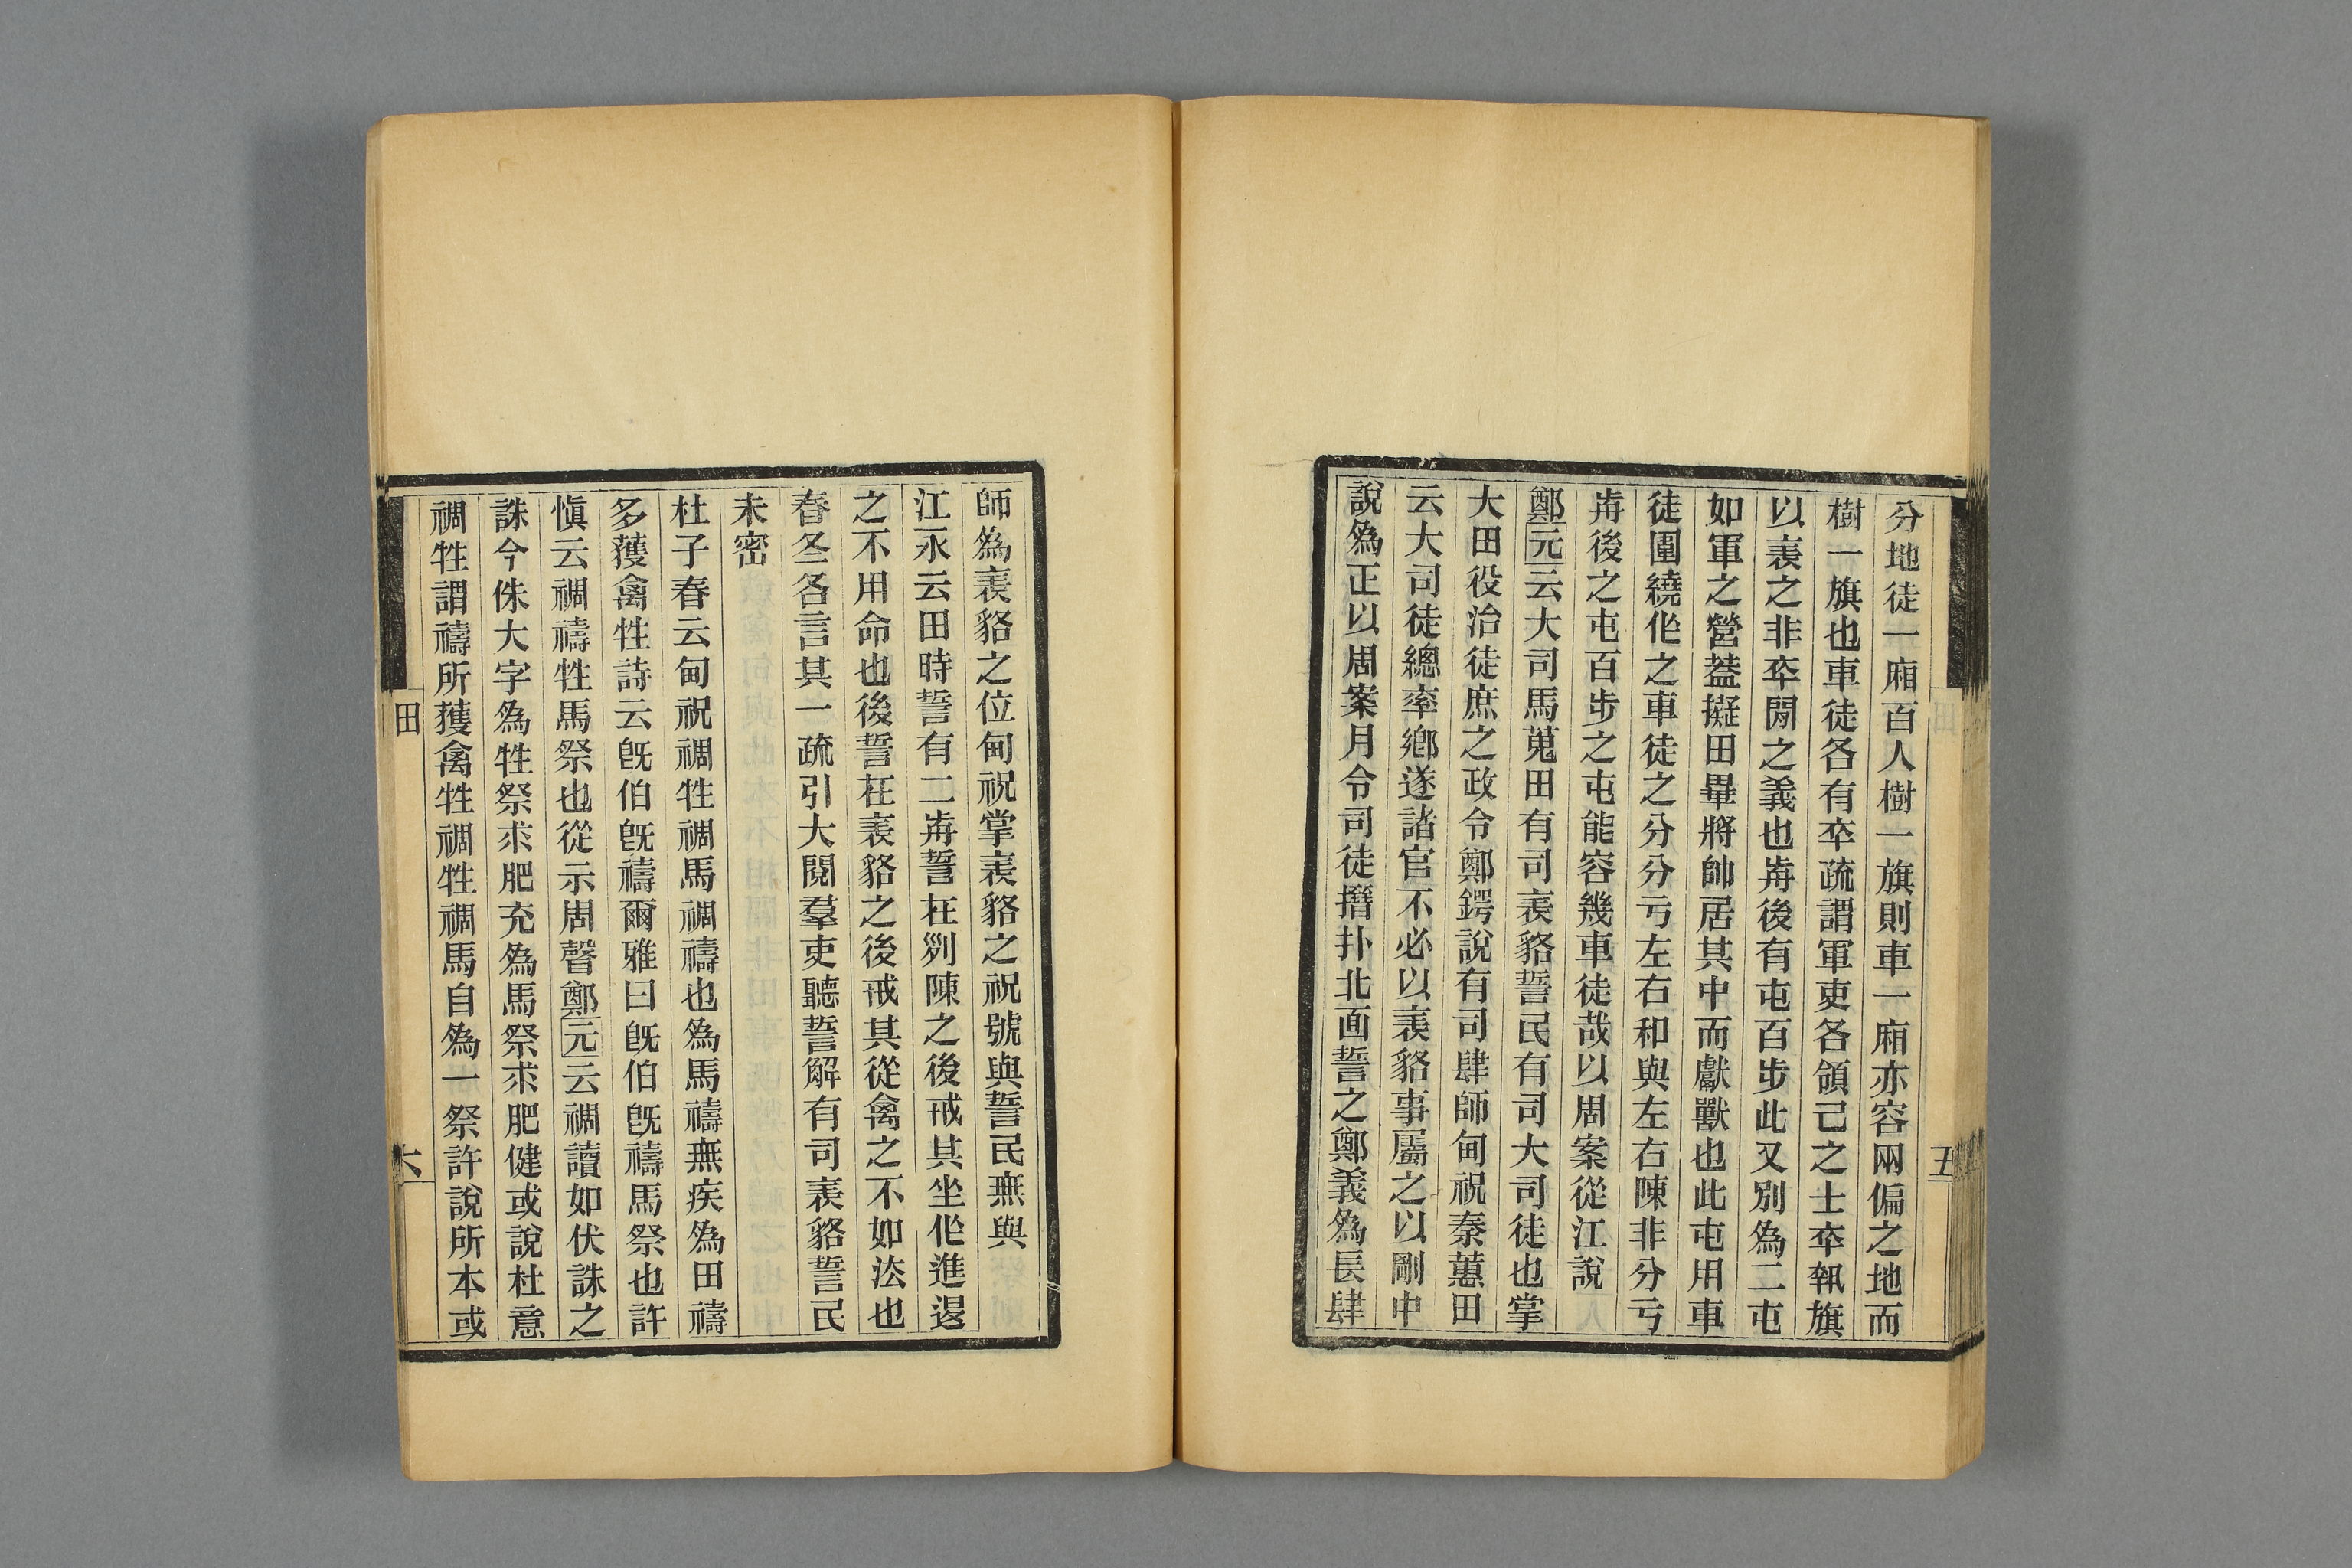 分地徒一廂百人樹一旗則車一廂亦容兩偏之地而
樹一旗也車徒各有卒疏謂軍吏各領己之士卒執旗
以表之非卒閒之義也歬後有屯百步此又別爲二屯
如軍之營葢擬田畢將帥居其中而獻獸也此屯用車
徒圍繞作之車徒之分分亏左右和與左右陳非分亏
歬後之屯百步之屯能容幾車徒哉以周案從江說
鄭元云大司馬蒐田有司表貉誓民有司大司徒也掌
大田役治徒庶之政令鄭鍔說有司肆師甸祝秦蕙田
云大司徒總率鄉遂諸官不必以表貉事屬之以剛中
說爲正以周案月令司徒搢扑北面誓之鄭義爲長肆
五
師爲表貉之位甸祝掌表貉之祝號與誓民無與
江永云田時誓有二歬誓在列陳之後戒其坐作進退
之不用命也後誓在表貉之後戒其從禽之不如法也
春冬各言其一疏引大閱羣吏聽誓解有司表貉誓民
未密
杜子春云甸祝禂牲禂馬禂禱也爲馬禱無疾爲田禱
多獲禽牲詩云旣伯旣禱爾雅曰旣伯旣禱馬祭也許
愼云禂禱牲馬祭也從示周聲鄭元云禂讀如伏誅之
誅今侏大字爲牲祭求肥充爲馬祭求肥健或說杜意
禂牲謂禱所獲禽牲禂牲禂馬自爲一祭許說所本或
田
六